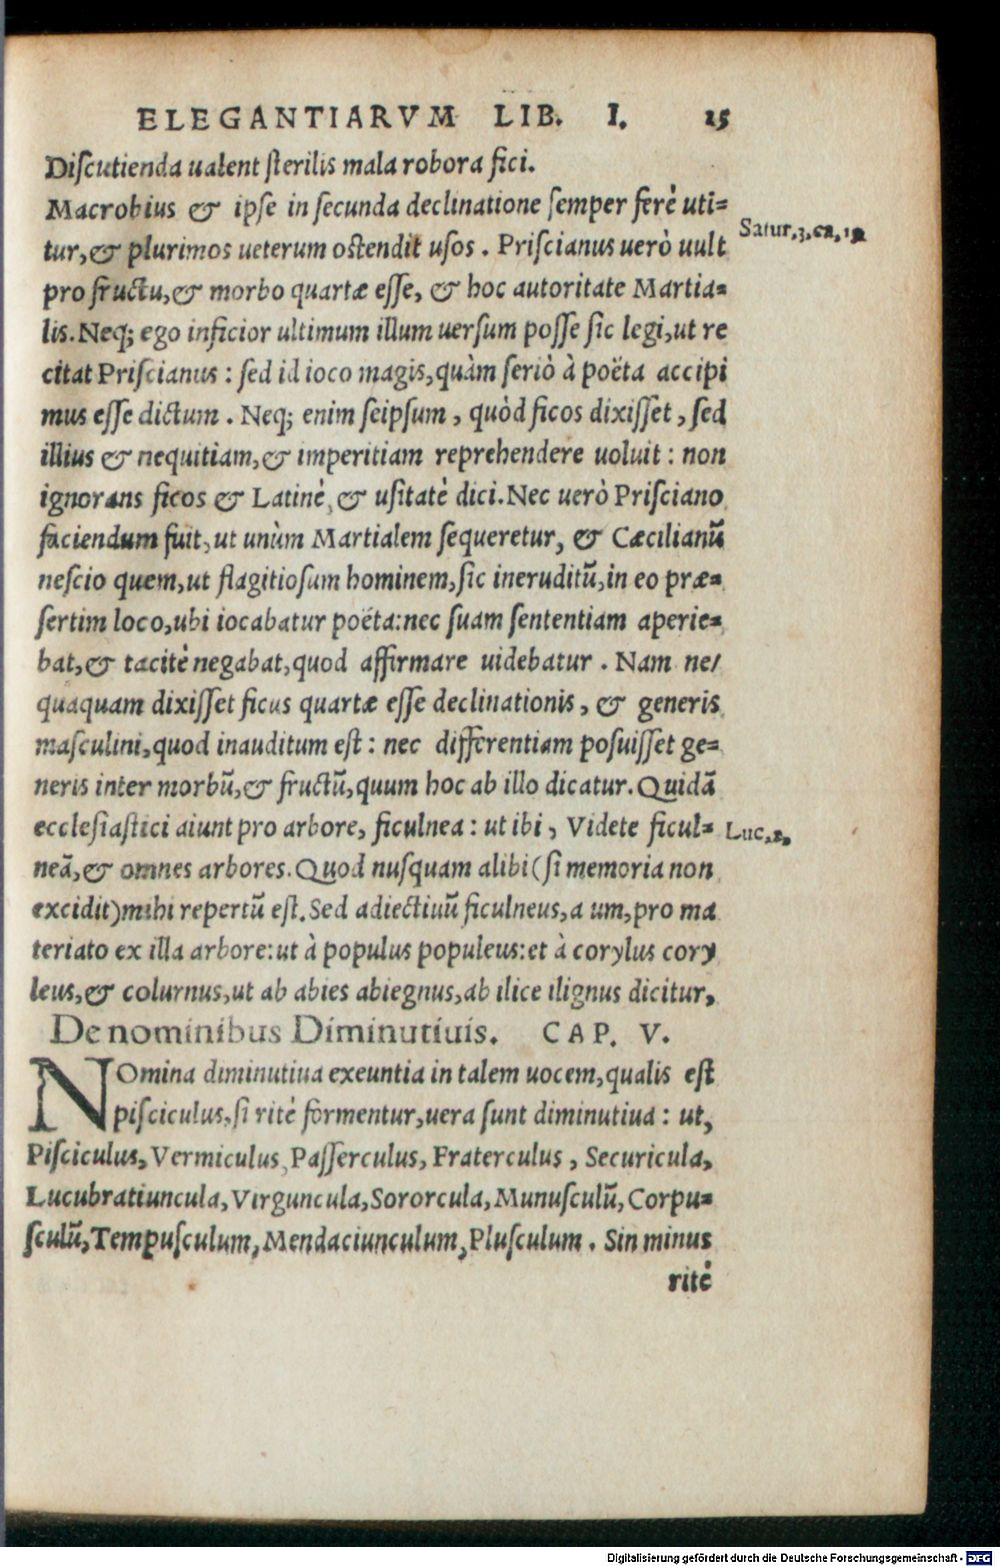 ELEGANTIARVM LIB. I. 15
Diſcutienda ualent ſterilis mala robora fici.
Macrobius & ipſe in ſecunda declinatione ſemper ferè uti=
Satur.3.ca.19.
tur,& plurimos ueterum oſtendit uſos. Priſcianus uerò uult
pro fructu,& morbo quartæ eſſe, & hoc autoritate Martia=
lis.Neq; ego inficior ultimum illum uerſum poſſe ſic legi,ut re
citat Priſcianus : ſed id ioco magis,quàm ſeriò à poëta accipi
mus eſſe dictum. Neq; enim ſeipſum, quòd ficos dixiſſet, ſed
illius & nequitiam,& imperitiam reprehendere uoluit : non
ignorans ficos & Latinè, & uſitatè dici.Nec uerò Priſciano
faciendum fuit,ut unùm Martialem ſequeretur, & Cæcilianũ
neſcio quem,ut flagitioſum hominem,ſic ineruditũ,in eo præ=
ſertim loco,ubi iocabatur poëta:nec ſuam ſententiam aperie=
bat,& tacitè negabat,quod affirmare uidebatur. Nam ne/
quaquam dixiſſet ficus quartæ eſſe declinationis, & generis
maſculini,quod inauditum eſt : nec differentiam poſuiſſet ge=
neris inter morbũ,& fructũ,quum hoc ab illo dicatur.Quidã
eccleſiaſtici aiunt pro arbore, ficulnea : ut ibi, Videte ficul=
Luc.2.
neã,& omnes arbores.Quod nuſquam alibi(ſi memoria non
excidit)mihi repertũ eſt.Sed adiectiuũ ficulneus,a um,pro ma
teriato ex illa arbore:ut à populus populeus:et à corylus cory
leus,& colurnus,ut ab abies abiegnus,ab ilice ilignus dicitur,
De nominibus Diminutiuis. CAP. V.
NOmina diminutiua exeuntia in talem uocem,qualis eſt
piſciculus,ſi ritè formentur,uera ſunt diminutiua : ut,
Piſciculus,Vermiculus,Paſſerculus, Fraterculus, Securicula,
Lucubratiuncula,Virguncula,Sororcula,Munuſculũ,Corpu=
ſculũ,Tempuſculum,Mendaciunculum,Pluſculum. Sin minus
ritè
Digitalisierung gefördert durch die Deutsche Forschungsgemeinschaft - DFG